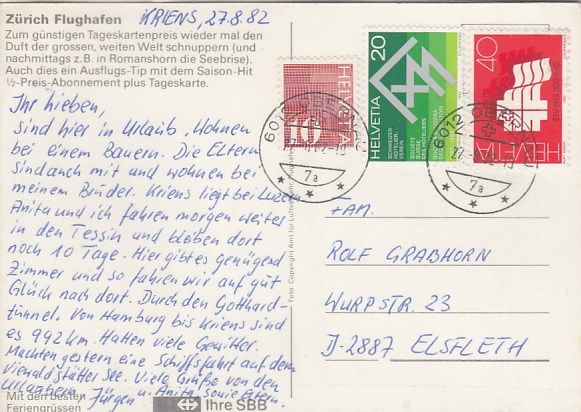 Zürich Flughafen
KRIENS, 27.8.82
Zum günstigen Tageskartenpreis wieder mal den
Duft der grossen, weiten Welt schnuppern (und
nachmittags z.B. in Romanshorn die Seebrise).
Auch dies ein Ausflugs-Tip mit dem Saison-Hit
½-Preis-Abonnement plus Tageskarte.
Ihr lieben,
sind hier in Urlaub, Wohnen
bei einem Bauern. Die Eltern
sind auch mit und wohnen bei
meinem Bruder. Kriens liegt bei Luzern
Anita und ich fahren morgen weiter
in den Tessin und bleiben dort
noch 10 Tage. Hier gibt es genügend
Zimmer und so fahren wir auf gut
Glück nach dort. Durch den Gotthard-
tünnel. Von Hamburg bis Kriens sind
es 992 km. Hatten viele Gewitter.
Machten gestern eine Schiffsfahrt auf dem
Vierwaldstätter See. Viele Grüße von den
Urlaubern, Jürgen u. Anita, sowie Eltern.
Mit den besten
Feriengrüssen
Ihre SBB
HELVETIA
10
HELVETIA
20
SCHWEIZER
HOTELIER-
VEREIN
SOCIÉTÉ
SUISSE
DES HÔTELIERS
40
HELVETIA
6012 OBERNAU
7a
6012 OBERNAU
7a
FAM.
ROLF GRABHORN
WURPSTR. 23
D-2887 ELSFLETH